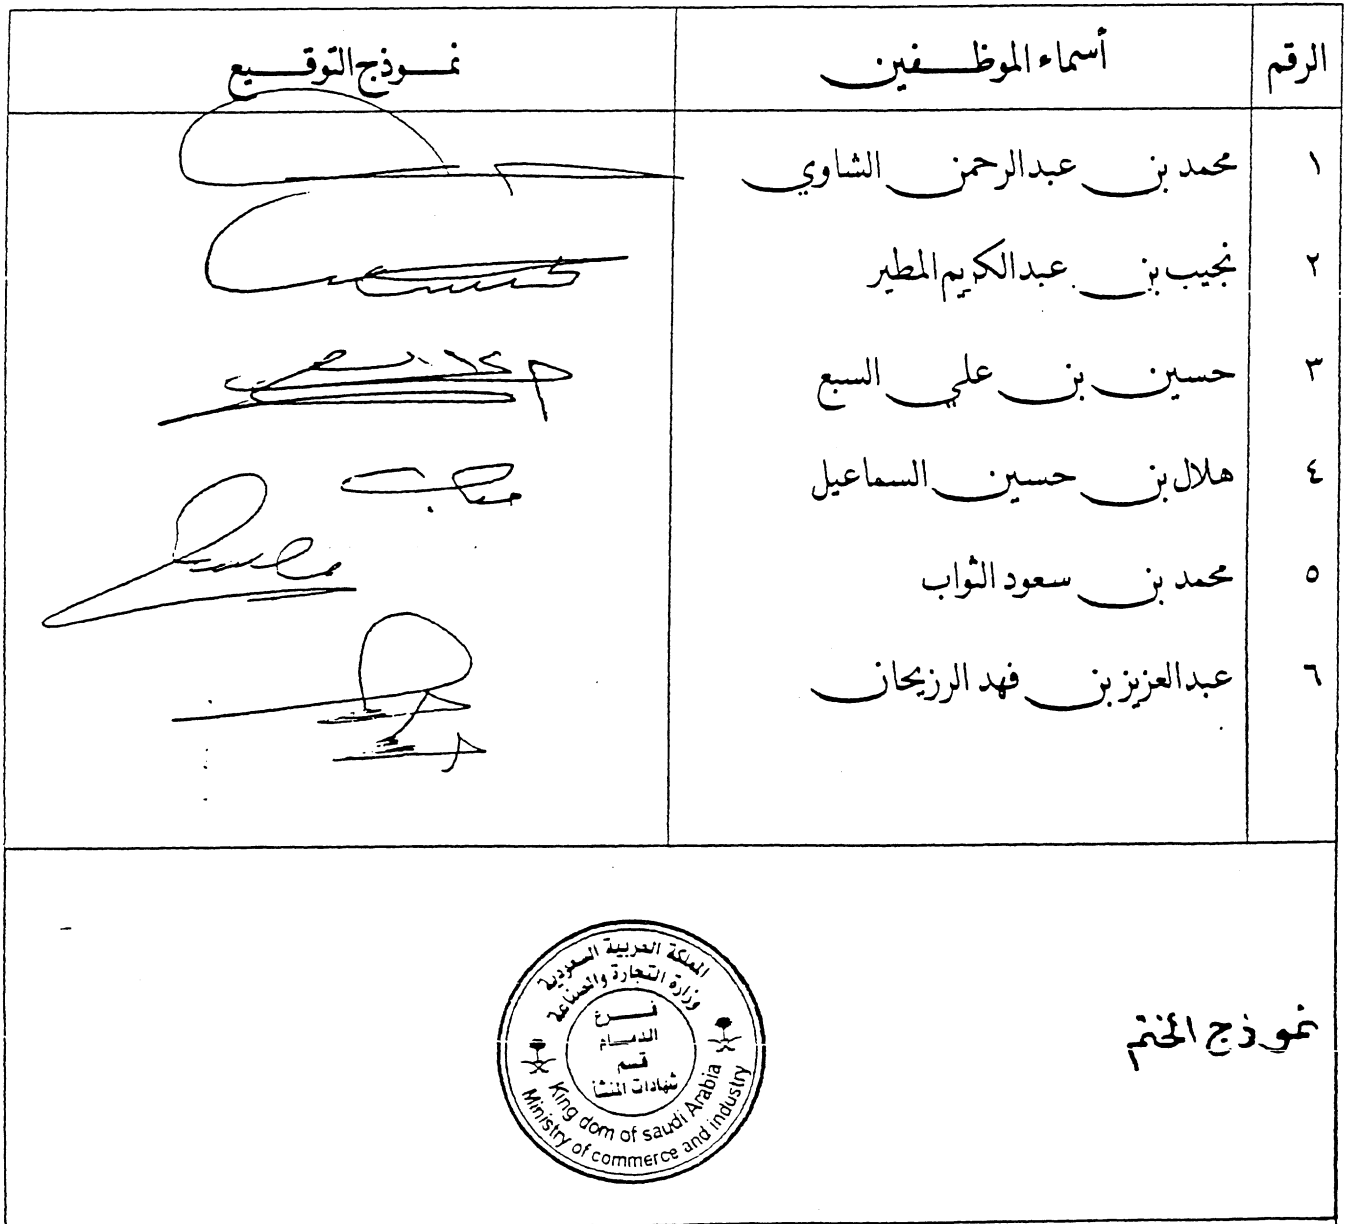 الرقم أسماء الموظفين نموذج التوقيع
١ محمد بن عبدالرحمن الشاوي
٢ نجيب بن عبدالكريم المطير
٣ حسين بن علي السبع
٤ هلال بن حسين السماعيل
٥ محمد بن سعود الثواب
٦ عبدالعزيز بن فهد الرزيحان
نموذج الختم
المملكة العربية السعودية
وزارة التجارة والصناعة
فرع
الدمام
قسم
شهادات المنشأ
King dom of saudi Arabia
Ministry of commerce and industry